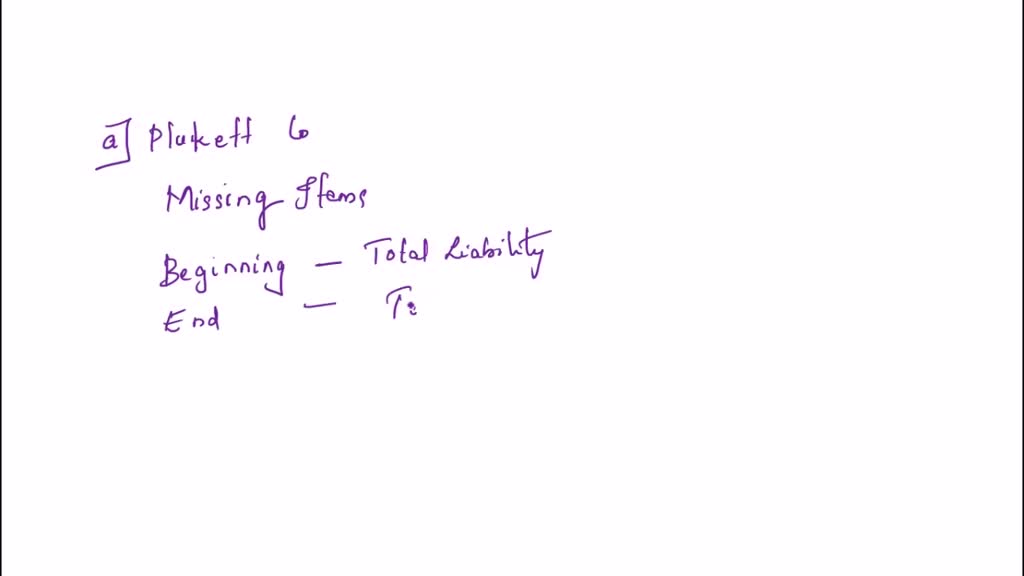 a] Plukett Co
Missing Items
Beginning — Total Liability
End — To